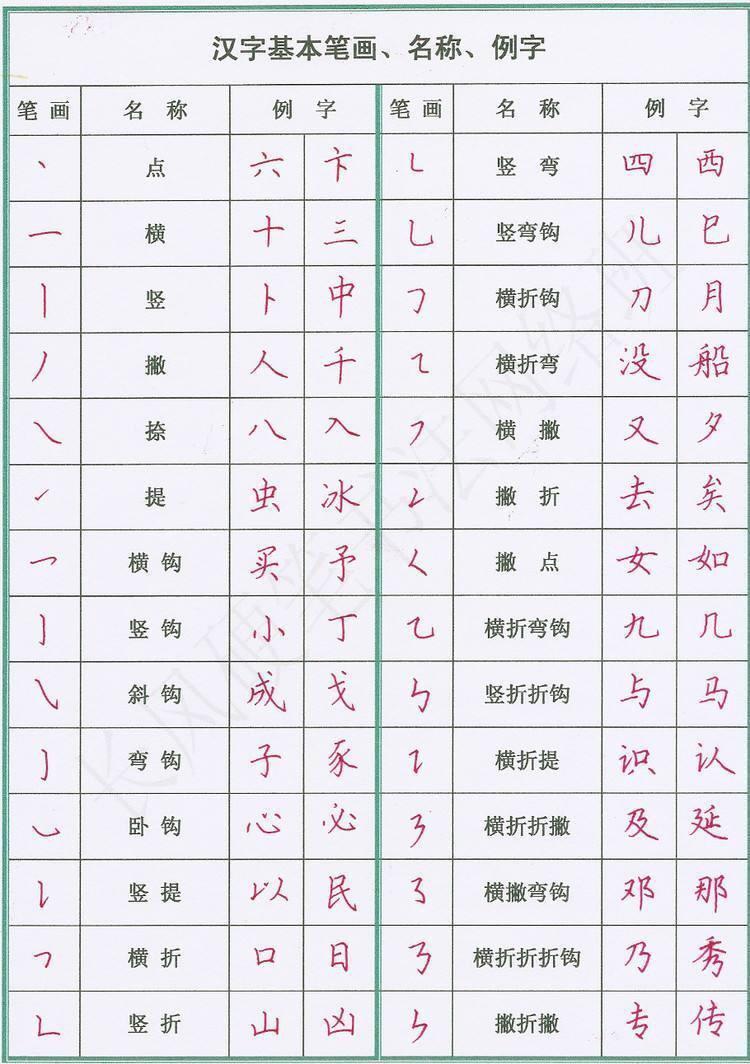 汉字基本笔画、名称、例字
笔画 名称 例字 笔画 名称 例字
丶 点 六 卞 ㇄ 竖弯 四 西
一 横 十 三 乚 竖弯钩 儿 巳
丨 竖 卜 中 𠃌 横折钩 刀 月
丿 撇 人 千 ㇍ 横折弯 没 船
㇏ 捺 八 入 ㇇ 横撇 又 夕
㇀ 提 虫 冰 ㇜ 撇折 去 矣
乛 横钩 买 予 ㇛ 撇点 女 如
亅 竖钩 小 丁 ㇈ 横折弯钩 九 几
㇂ 斜钩 成 戈 ㇉ 竖折折钩 与 马
㇁ 弯钩 子 豕 ㇊ 横折提 识 认
㇃ 卧钩 心 必 ㇋ 横折折撇 及 延
㇙ 竖提 以 民 ㇌ 横撇弯钩 邓 那
㇕ 横折 口 日 ㇡ 横折折折钩 乃 秀
㇗ 竖折 山 凶 ㇞ 撇折撇 专 传
长风硬笔书法网络班